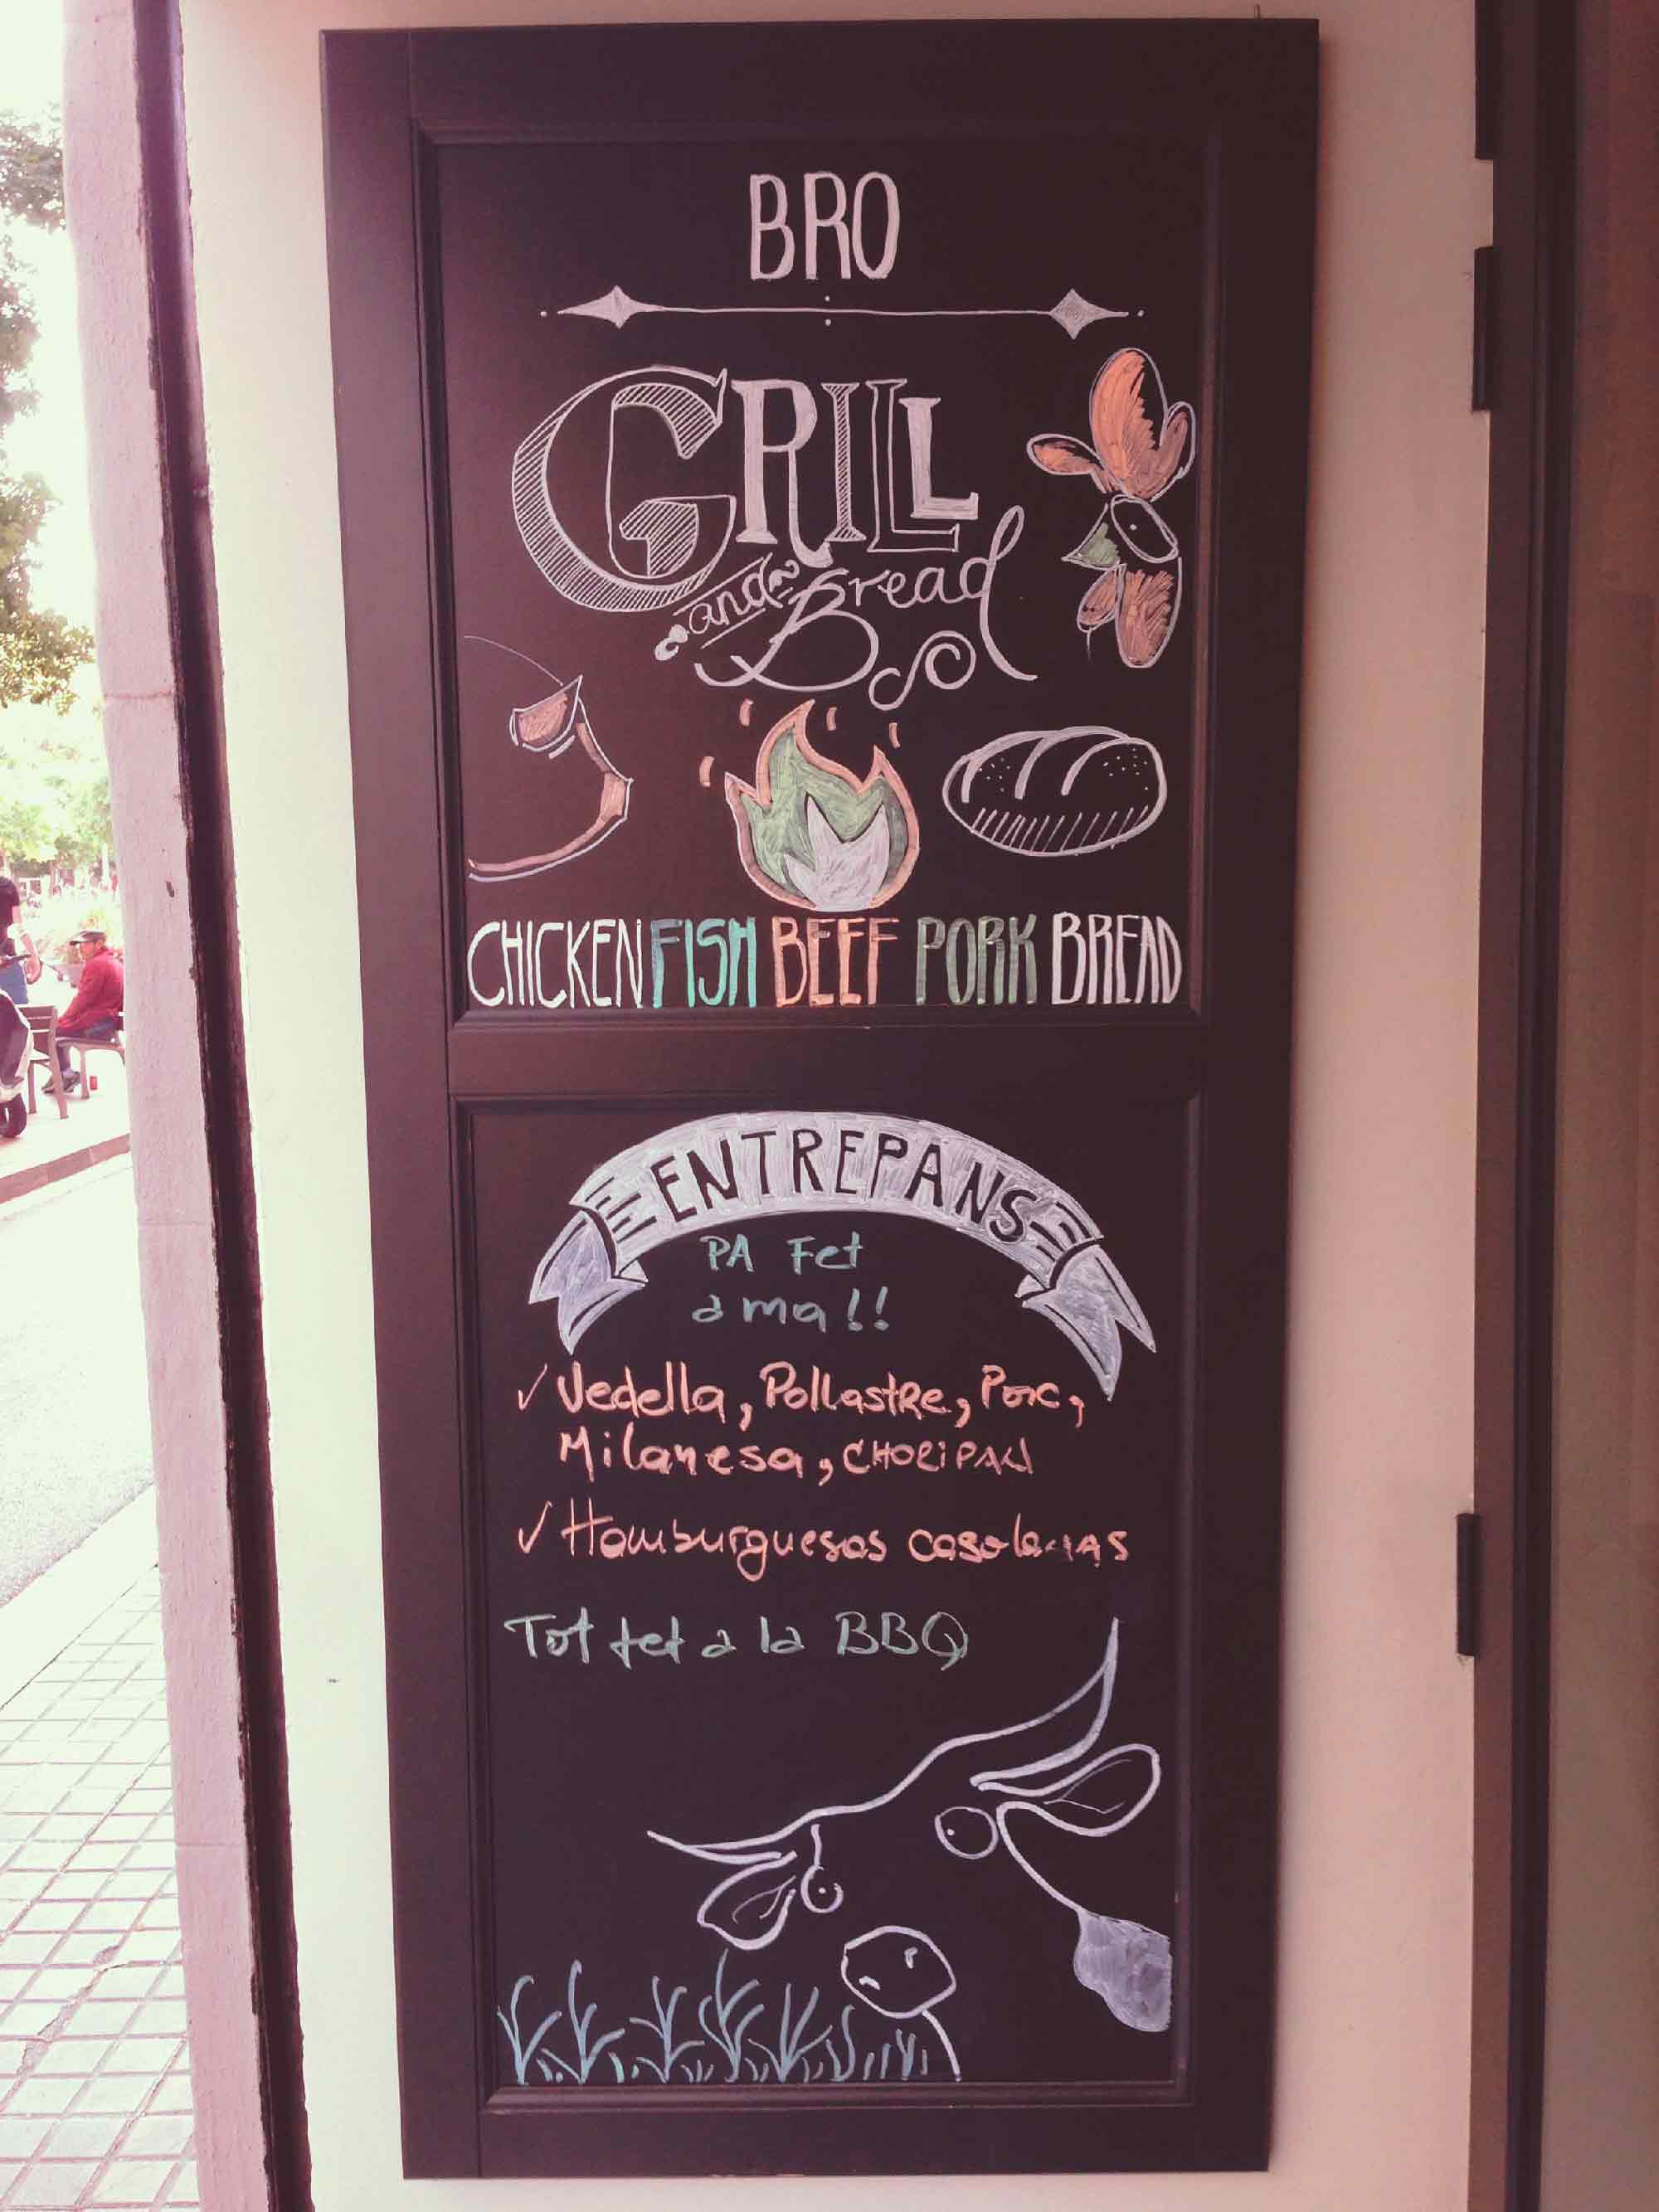 BRO
GRILL
and Bread
CHICKEN FISH BEEF PORK BREAD
ENTREPANS
PA Fet
a ma!!
✓ Vedella, Pollastre, Porc,
Milanesa, CHORIPAN
✓ Hamburgueses casolanas
Tot fet a la BBQ